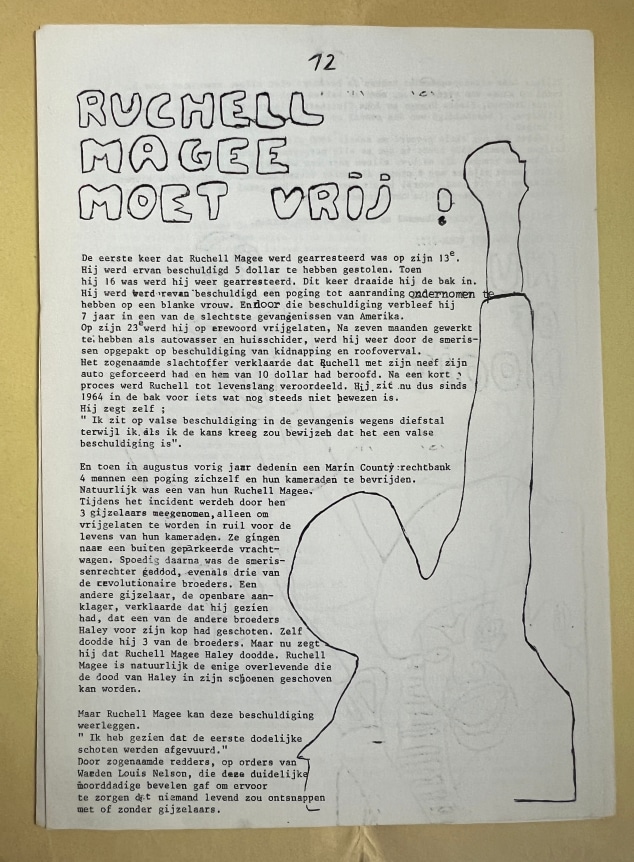 12
RUCHELL
MAGEE
MOET VRIJ !
De eerste keer dat Ruchell Magee werd gearresteerd was op zijn 13e.
Hij werd ervan beschuldigd 5 dollar te hebben gestolen. Toen
hij 16 was werd hij weer gearresteerd. Dit keer draaide hij de bak in.
Hij werd werd ervan beschuldigd een poging tot aanranding ondernomen te
hebben op een blanke vrouw. En door die beschuldiging verbleef hij
7 jaar in een van de slechtste gevangenissen van Amerika.
Op zijn 23e werd hij op erewoord vrijgelaten, Na zeven maanden gewerkt
te hebben als autowasser en huisschider, werd hij weer door de smeris-
sen opgepakt op beschuldiging van kidnapping en roofoverval.
Het zogenaamde slachtoffer verklaarde dat Ruchell met zijn neef zijn
auto geforceerd had en hem van 10 dollar had beroofd. Na een kort
proces werd Ruchell tot levenslang veroordeeld. Hij zit nu dus sinds
1964 in de bak voor iets wat nog steeds niet bewezen is.
Hij zegt zelf ;
" Ik zit op valse beschuldiging in de gevangenis wegens diefstal
terwijl ik als ik de kans kreeg zou bewijzeh dat het een valse
beschuldiging is".
En toen in augustus vorig jaar dedenin een Marin County rechtbank
4 mannen een poging zichzelf en hun kameraden te bevrijden.
Natuurlijk was een van hun Ruchell Magee.
Tijdens het incident werdeh door hen
3 gijzelaars meegenomen, alleen om
vrijgelaten te worden in ruil voor de
levens van hun kameraden. Ze gingen
naar een buiten geparkeerde vracht-
wagen. Spoedig daarna was de smeris-
senrechter geddod, evenals drie van
de revolutionaire broeders. Een
andere gijzelaar, de openbare aan-
klager, verklaarde dat hij gezien
had, dat een van de andere broeders
Haley voor zijn kop had geschoten. Zelf
doodde hij 3 van de broeders. Maar nu zegt
hij dat Ruchell Magee Haley doodde. Ruchell
Magee is natuurlijk de enige overlevende die
de dood van Haley in zijn schoenen geschoven
kan worden.
Maar Ruchell Magee kan deze beschuldiging
weerleggen.
" Ik heb gezien dat de eerste dodelijke
schoten werden afgevuurd."
Door zogenaamde redders, op orders van
Warden Louis Nelson, die deze duidelijke
moorddadige bevelen gaf om ervoor
te zorgen dat niemand levend zou ontsnappen
met of zonder gijzelaars.